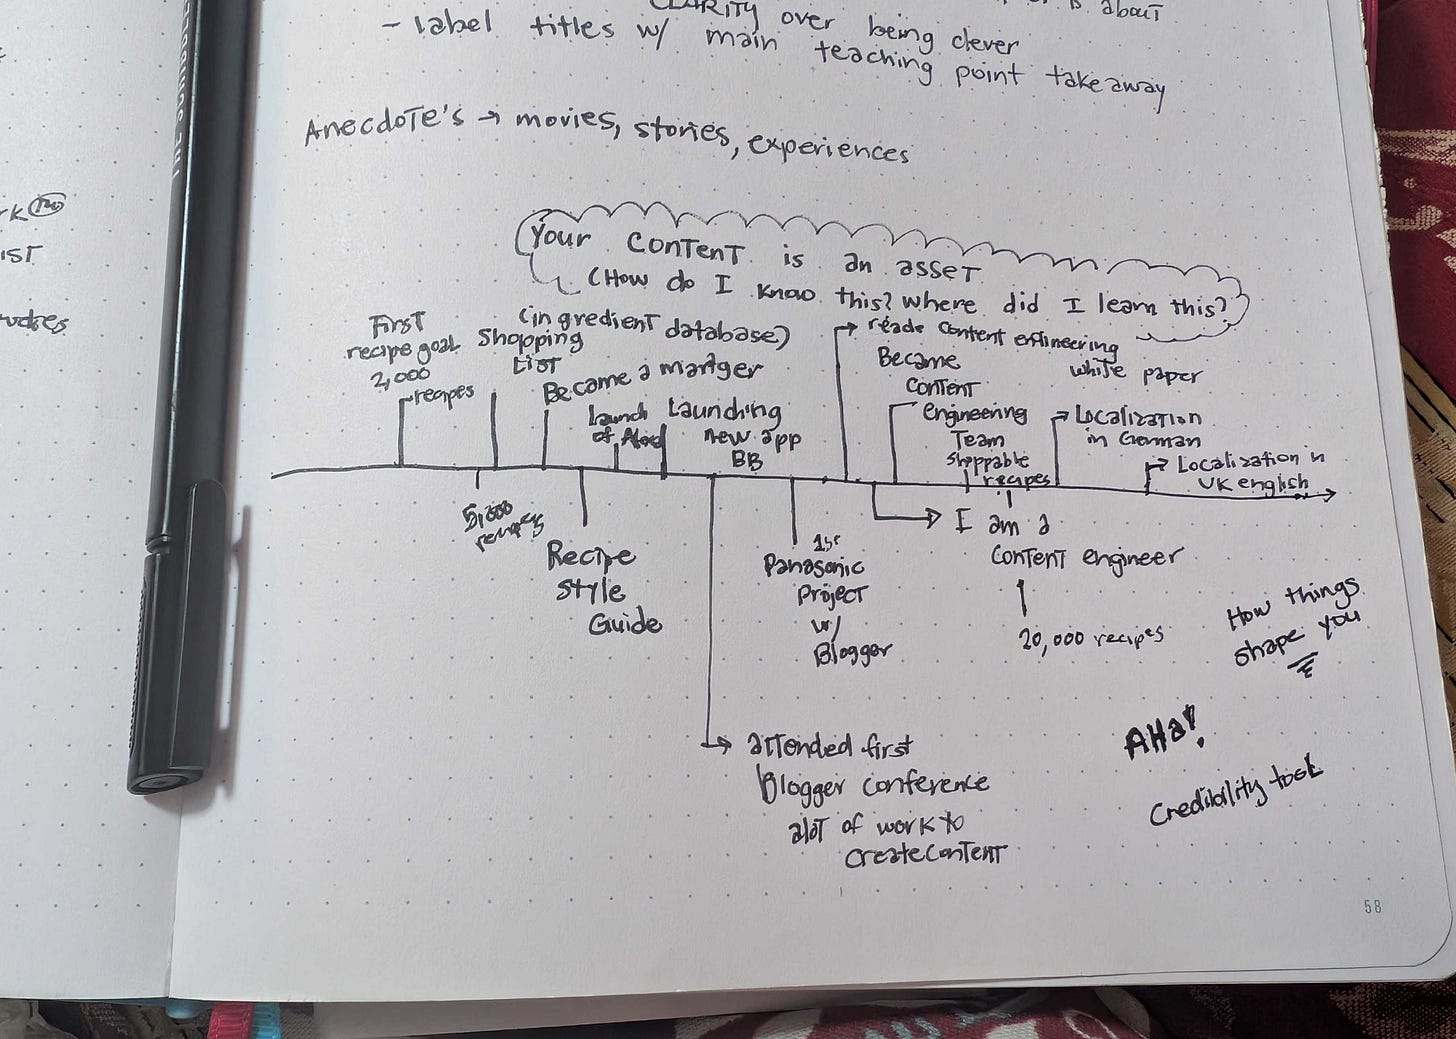 CLARITY over being clever
about
- Label titles w/ main teaching point takeaway
Anecdote's → movies, stories, experiences
Your content is an asset
(How do I know this? Where did I learn this?)
First
recipe goal
2,000
recipes
Shopping
List
(ingredient database)
Became a manager
Launch
of
Launching
new app
BB
reade content engineering
white paper
Became
content
engineering
Team
Shoppable
recipes
Localization
in German
Localization in
UK english
5,000
recipes
Recipe
Style
Guide
attended first
Blogger conference
alot of work to
create content
1st
Panasonic
Project
w/
Blogger
I am a
content engineer
20,000 recipes
How things
shape you
AHa!
Credibility took
58